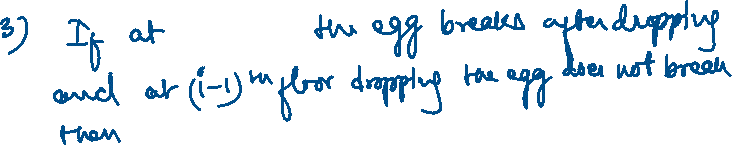 3) If at the egg breaks after dropping
and at (i-1)th floor dropping the egg does not break
then